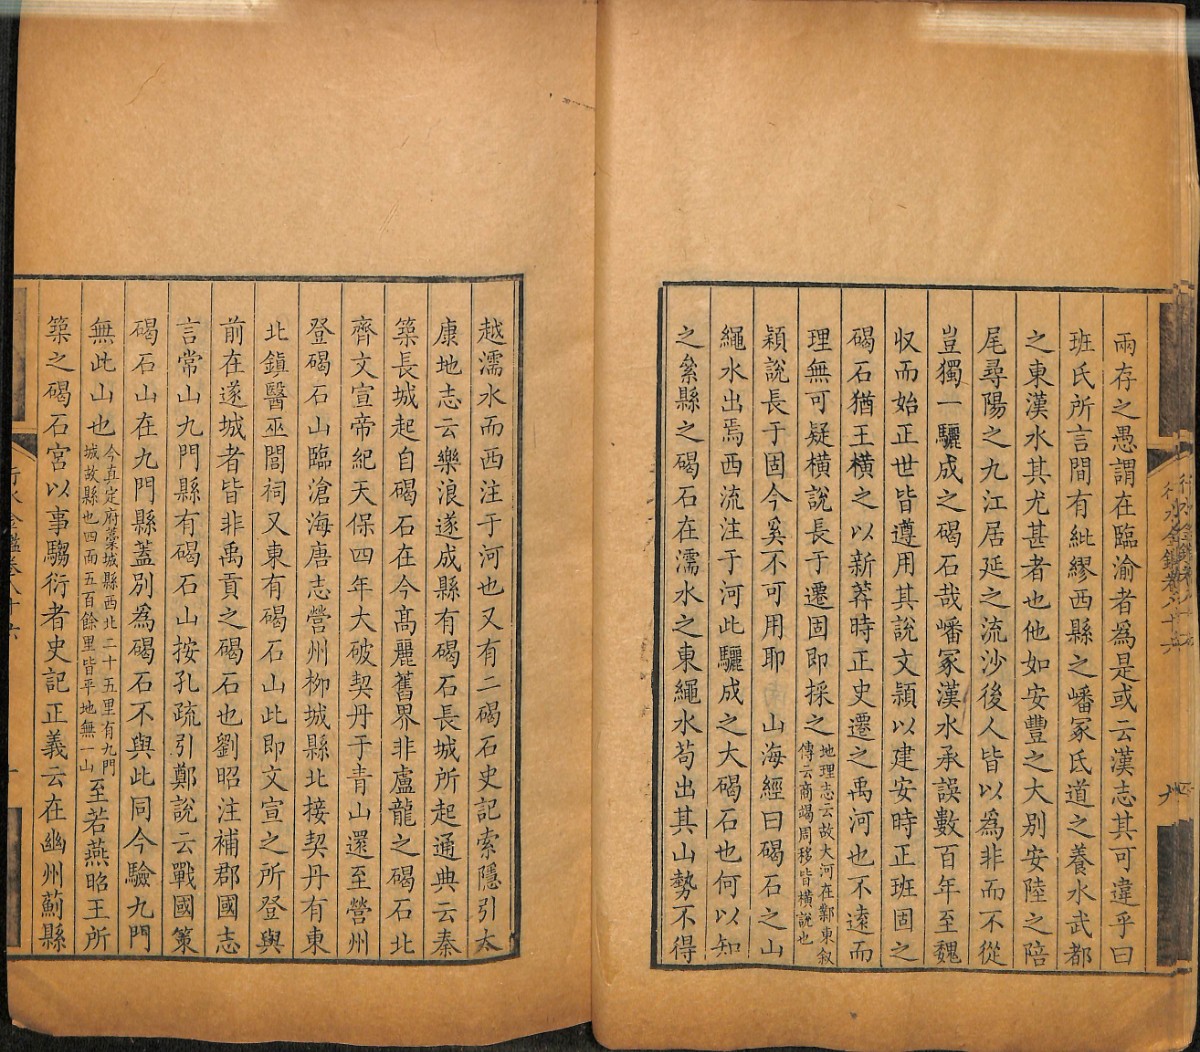 兩存之愚謂在臨渝者為是或云漢志其可違乎曰
班氏所言間有紕繆西縣之嶓冢氐道之養水武都
之東漢水其尤甚者也他如安豐之大別安陸之陪
尾尋陽之九江居延之流沙後人皆以為非而不從
豈獨一驪成之碣石哉嶓冢漢水承誤數百年至魏
収而始正世皆遵用其說文穎以建安時正班固之
碣石猶王橫之以新莽時正史遷之禹河也不逺而
理無可疑橫說長于遷固即採之地理志云故大河在鄴東叙傳云商竭周移皆橫說也
穎說長于固今奚不可用耶 山海經曰碣石之山
繩水出焉西流注于河此驪成之大碣石也何以知
之絫縣之碣石在濡水之東繩水苟出其山勢不得
越濡水而西注于河也又有二碣石史記索隱引太
康地志云樂浪遂成縣有碣石長城所起通典云秦
築長城起自碣石在今髙麗舊界非盧龍之碣石北
齊文宣帝紀天保四年大破契丹于青山還至營州
登碣石山臨滄海唐志營州栁城縣北接契丹有東
北鎮醫巫閭祠又東有碣石山此即文宣之所登與
前在遂城者皆非禹貢之碣石也劉昭注補郡國志
言常山九門縣有碣石山按孔疏引鄭說云戰國策
碣石山在九門縣蓋別為碣石不與此同今驗九門
無此山也今真定府藁城縣西北二十五里有九門城故縣也四面五百餘里皆平地無一山至若燕昭王所
築之碣石宮以事騶衍者史記正義云在幽州薊縣